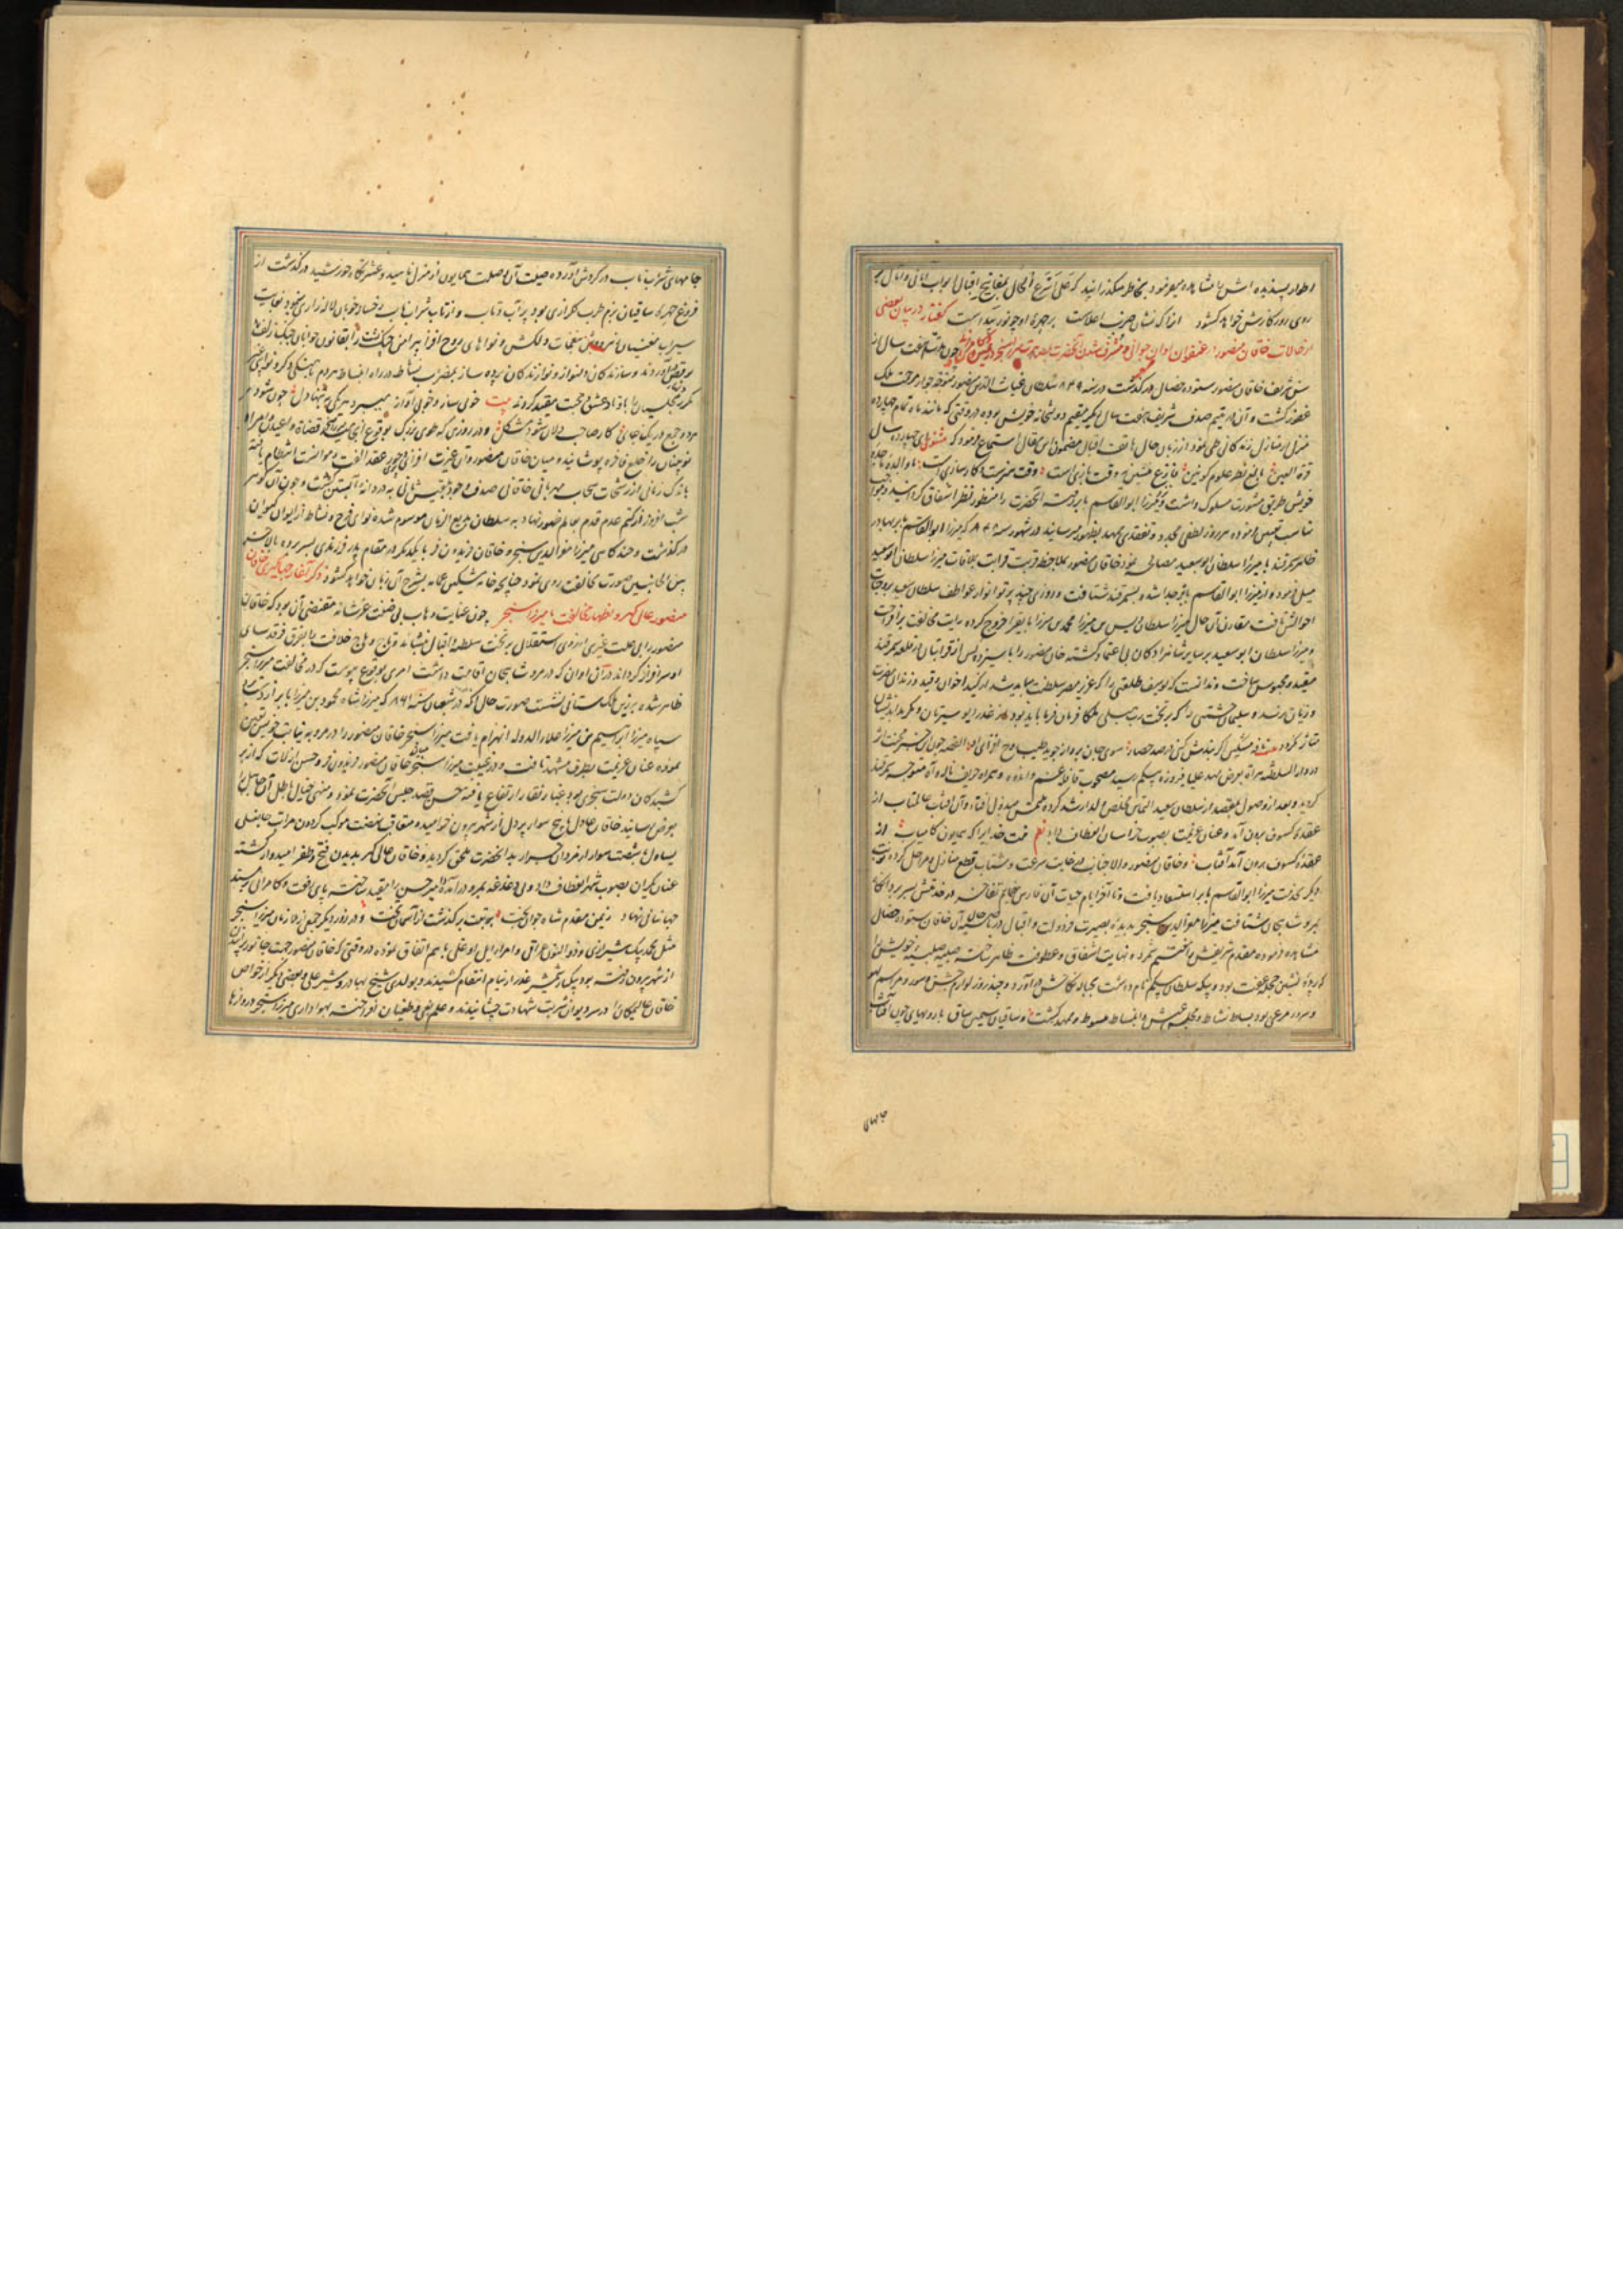 اطوار پسندیده اش را مشاهده میفرمود بخاطر میگذرانید که علی اسرع الحال بمفاتیح اقبال ابواب
روی روزگارش خواهد کشود از آنکه نشان صرف اعلاست بر چهره او چو نور پیداست گفتار در بیان بعضی
از حالات خاقان منصور در عنفوان اوان جوانی و مشرف شدن آنحضرت چون هفت سال از
سن شریف خاقان منصور ستوده خصال درگذشت در سنه ۸۴۹ سلطان غیاث الدین منصور متوجه جوار مرحمت ملک
غفور گشت و آن در یتیم صدف شریف هفت سال دیگر مقیم دولتخانه خویش بوده در وقتی که مانند ماه تمام چهارده
منزل از منازل زندگانی طی نمود از زبان حال هاتف اقبال مضمون این مقال استماع فرمود که مثنوی ای چهارده سال
قرة العین بالغ نظر علوم کونین فارغ منشین نه وقت بازی است وقت هنرست و کارسازی است با والده ماجده
خویش طریق مشورت مسلوک داشت و میرزا ابو القاسم بابر تربیت آنحضرت را منظور نظر اشفاق گردانید
مناسب تعیین فرموده هر روز لطفی مجدد و تفقدی ممهد بظهور میرسانید در شهور سنه که میرزا ابو القاسم بابر بهادر
ظاهر سمرقند با میرزا سلطان ابو سعید مصالحه نمود خاقان منصور بملاحظه قربت قرابت بملاقات میرزا سلطان ابو سعید
میل فرموده از میرزا ابو القاسم بابر جدا شد و بسمرقند شتافت و روزی چند پرتو انوار عواطف سلطان سعید بر وجنات
احوالش تافت مقارن آن حال میرزا سلطان اویس بن میرزا محمد بن میرزا بایقرا خروج کرده رایت مخالفت برافراخت
و میرزا سلطان ابو سعید بر سایر شاهزادگان بی اعتماد گشته خاقان منصور را با سیزده کس از قرابتان در قلعه سمرقند
مقید و محبوس ساخت و ندانست که یوسف طلعتی را که عزیز مصر سلطنت میباید شد از کید اخوان و قید زندان مضرت
و زیان نرسد و سلیمان حشمتی را که بر تخت رب هب لی ملکا فرمان فرما باید بود از غدر دیو سیرتان و مکر بداندیشان
متاثر نگردد نافه مشکین اگر بندش کنی در صد حصار سوی جان پرواز جوید طیب روح افزای او القصه چون این خبر محنت اثر
در دار السلطنه هراة بعرض مهد علیا فیروزه بیگم رسید مصحوب قافله غم و اندوه و همراه حریف ناله و آه متوجه سمرقند
گردید و بعد از وصول بمقصد از سلطان سعید التماس تخلص ولد ارشد کرده ملتمس مبذول افتاد و آن آفتاب عالمتاب از
عقده کسوف برون آمد و عنان عزیمت بصوب خراسان انعطاف داد نظم منت خدایرا که همایون کامیاب از
عقده کسوف برون آمد آفتاب و خاقان منصور والا جناب در غایت سرعت و شتاب قطع منازل و مراحل کرده نوبت
دیگر بخدمت میرزا ابو القاسم بابر استسعاد یافت و تا آخر ایام حیات آن فارس مضمار تفاخر در خدمتش بسر برد آنگاه
بمرو شاهجان شتافت میرزا معز الدین سنجر بدیده بصیرت فر دولت و اقبال در ناصیه آن خاقان ستوده خصال
مشاهده فرموده مقدم شریفش را مغتنم شمرد و نهایت اشفاق و عطوفت ظاهر ساخته صبیه صلبیه خویش را
که پرده نشین حجله عفت بود و بیگه سلطان بیگم نام داشت بحباله نکاحش درآورد و چند روز لوازم جشن و سور و مراسم لهو
و سرور مرعی بود بساط نشاط و مجلس عیش و انبساط مبسوط و ممهد گشت و ساقیان سیمین ساق با رویهای چون آفتاب
جامهای
جامهای شراب ناب در گردش آورده صیت آن وصلت همایون از منزل ناهید و عشرتگاه خورشید درگذشت از
فروغ چهره ساقیان بزم طرب گلزاری بود پر آب و تاب و از تاب شراب ناب رخسار خوبان لاله زاری
سیراب مغنیان بنغمات دلکش و نواهای روح افزا
برقص آوردند و سازندگان دلنواز و نوازندگان پرده ساز بمضراب نشاط در راه انبساط
مجلسیان را با وتاد عشق و محبت مقید کردند بیت خوی ساز و خوی آواز میبرد هر یکی بتنها دل چون شود هر
دو جمع در یکجای کار صاحب دلان شود مشکل و در روزی که طوی بزرگ بوقوع انجامید میرزا سنجر قضاة و اعیان و امراء
نوینان را خلع فاخره پوشانید و میان خاقان منصور و آن غیرت افزای حور عقد الفت و موانست انتظام یافته
باندک زمانی از رشحات سحاب مهربانی خاقانی صدف وجود بلقیس ثانی به دردانه آبستن گشت و چون آن گوهر
شب افروز از کتم عدم قدم بعالم ظهور نهاد به سلطان بدیع الزمان موسوم شده نوای فرح و نشاط از ایوان کیوان
درگذشت و چند گاهی میرزا معز الدین سنجر و خاقان فریدون فر با یکدیگر در مقام پدر فرزندی بسر برده بالاخره
بین الجانبین صورت مخالفت روی نمود چنانچه خامه مشکین عمامه بشرح آن زبان خواهد کشود ذکر آغاز جهانگیری خاقان
منصور عالی گهر و اظهار مخالفت با میرزا سنجر چون عنایت وهاب بی ضنت عز شانه مقتضی آن بود که خاقان
منصور را بی علت غیری از روی استقلال بر تخت سلطنه و اقبال نشاند و تاج وهاج خلافت را بفرق فرقدسای
او سرافراز گرداند در آن اوان که در مرو شاهجان اقامت داشت امری بوقوع پیوست که در مخالفت میرزا سنجر
ظاهر شده بر زین ملک ستانی نشست صورت حال آنکه در شعبان سنه ۸۶۱ که میرزا شاه محمود بن میرزا بابر از دستبرد
سپاه میرزا ابراهیم بن میرزا علاء الدوله انهزام یافت میرزا سنجر خاقان منصور را در مرو به نیابت خویش تعیین
نموده عنان عزیمت بطرف مشهد تافت و در غیبت میرزا سنجر میان خاقان منصور فریدون فر و حسن ارلات که از
کشیدگان دولت سنجری بود غبار نقار ارتفاع یافته حسن قصد جلیس آنحضرت نمود و منهی خیال باطل آن جاهل را
بعرض رسانید خاقان عادل با پنج سوار پر دل از شهر بیرون خرامید و متعاقب نهضت موکب گردون مراتب
یساول با شصت سوار از مردان جرار بدانحضرت ملحق گردید و خاقان عالی گهر بدیدن فتح و ظفر امیدوار گشته
عنان یکران بصوب شهر انعطاف داد و بی دغدغه بمرو درآمد و امیر حسن را مقید ساخته پای رفعت و کامرانی بر مسند
جهانبانی نهاد زمین مقدم شاه جوان بخت برتبت برگذشت از آسمان تخت و در روز دیگر جمعی از ملازمان میرزا سنجر
مثل محمد بیک شیرازی و ذو النون عراقی و امراء ایل بو علی با هم اتفاق نموده در وقتی که خاقان منصور جهت جانور پرانیدن
از شهر بیرون رفته بود بیکبار شمشیر غدر از نیام انتقام کشیدند و بو لدی شیخ بهادر و شیر علی و بعضی دیگر از خواص
خاقان عالیمکان را در سر دیوان شربت شهادت چشانیدند و علم بغی و طغیان افراخته بهواداری میرزا سنجر دروازها